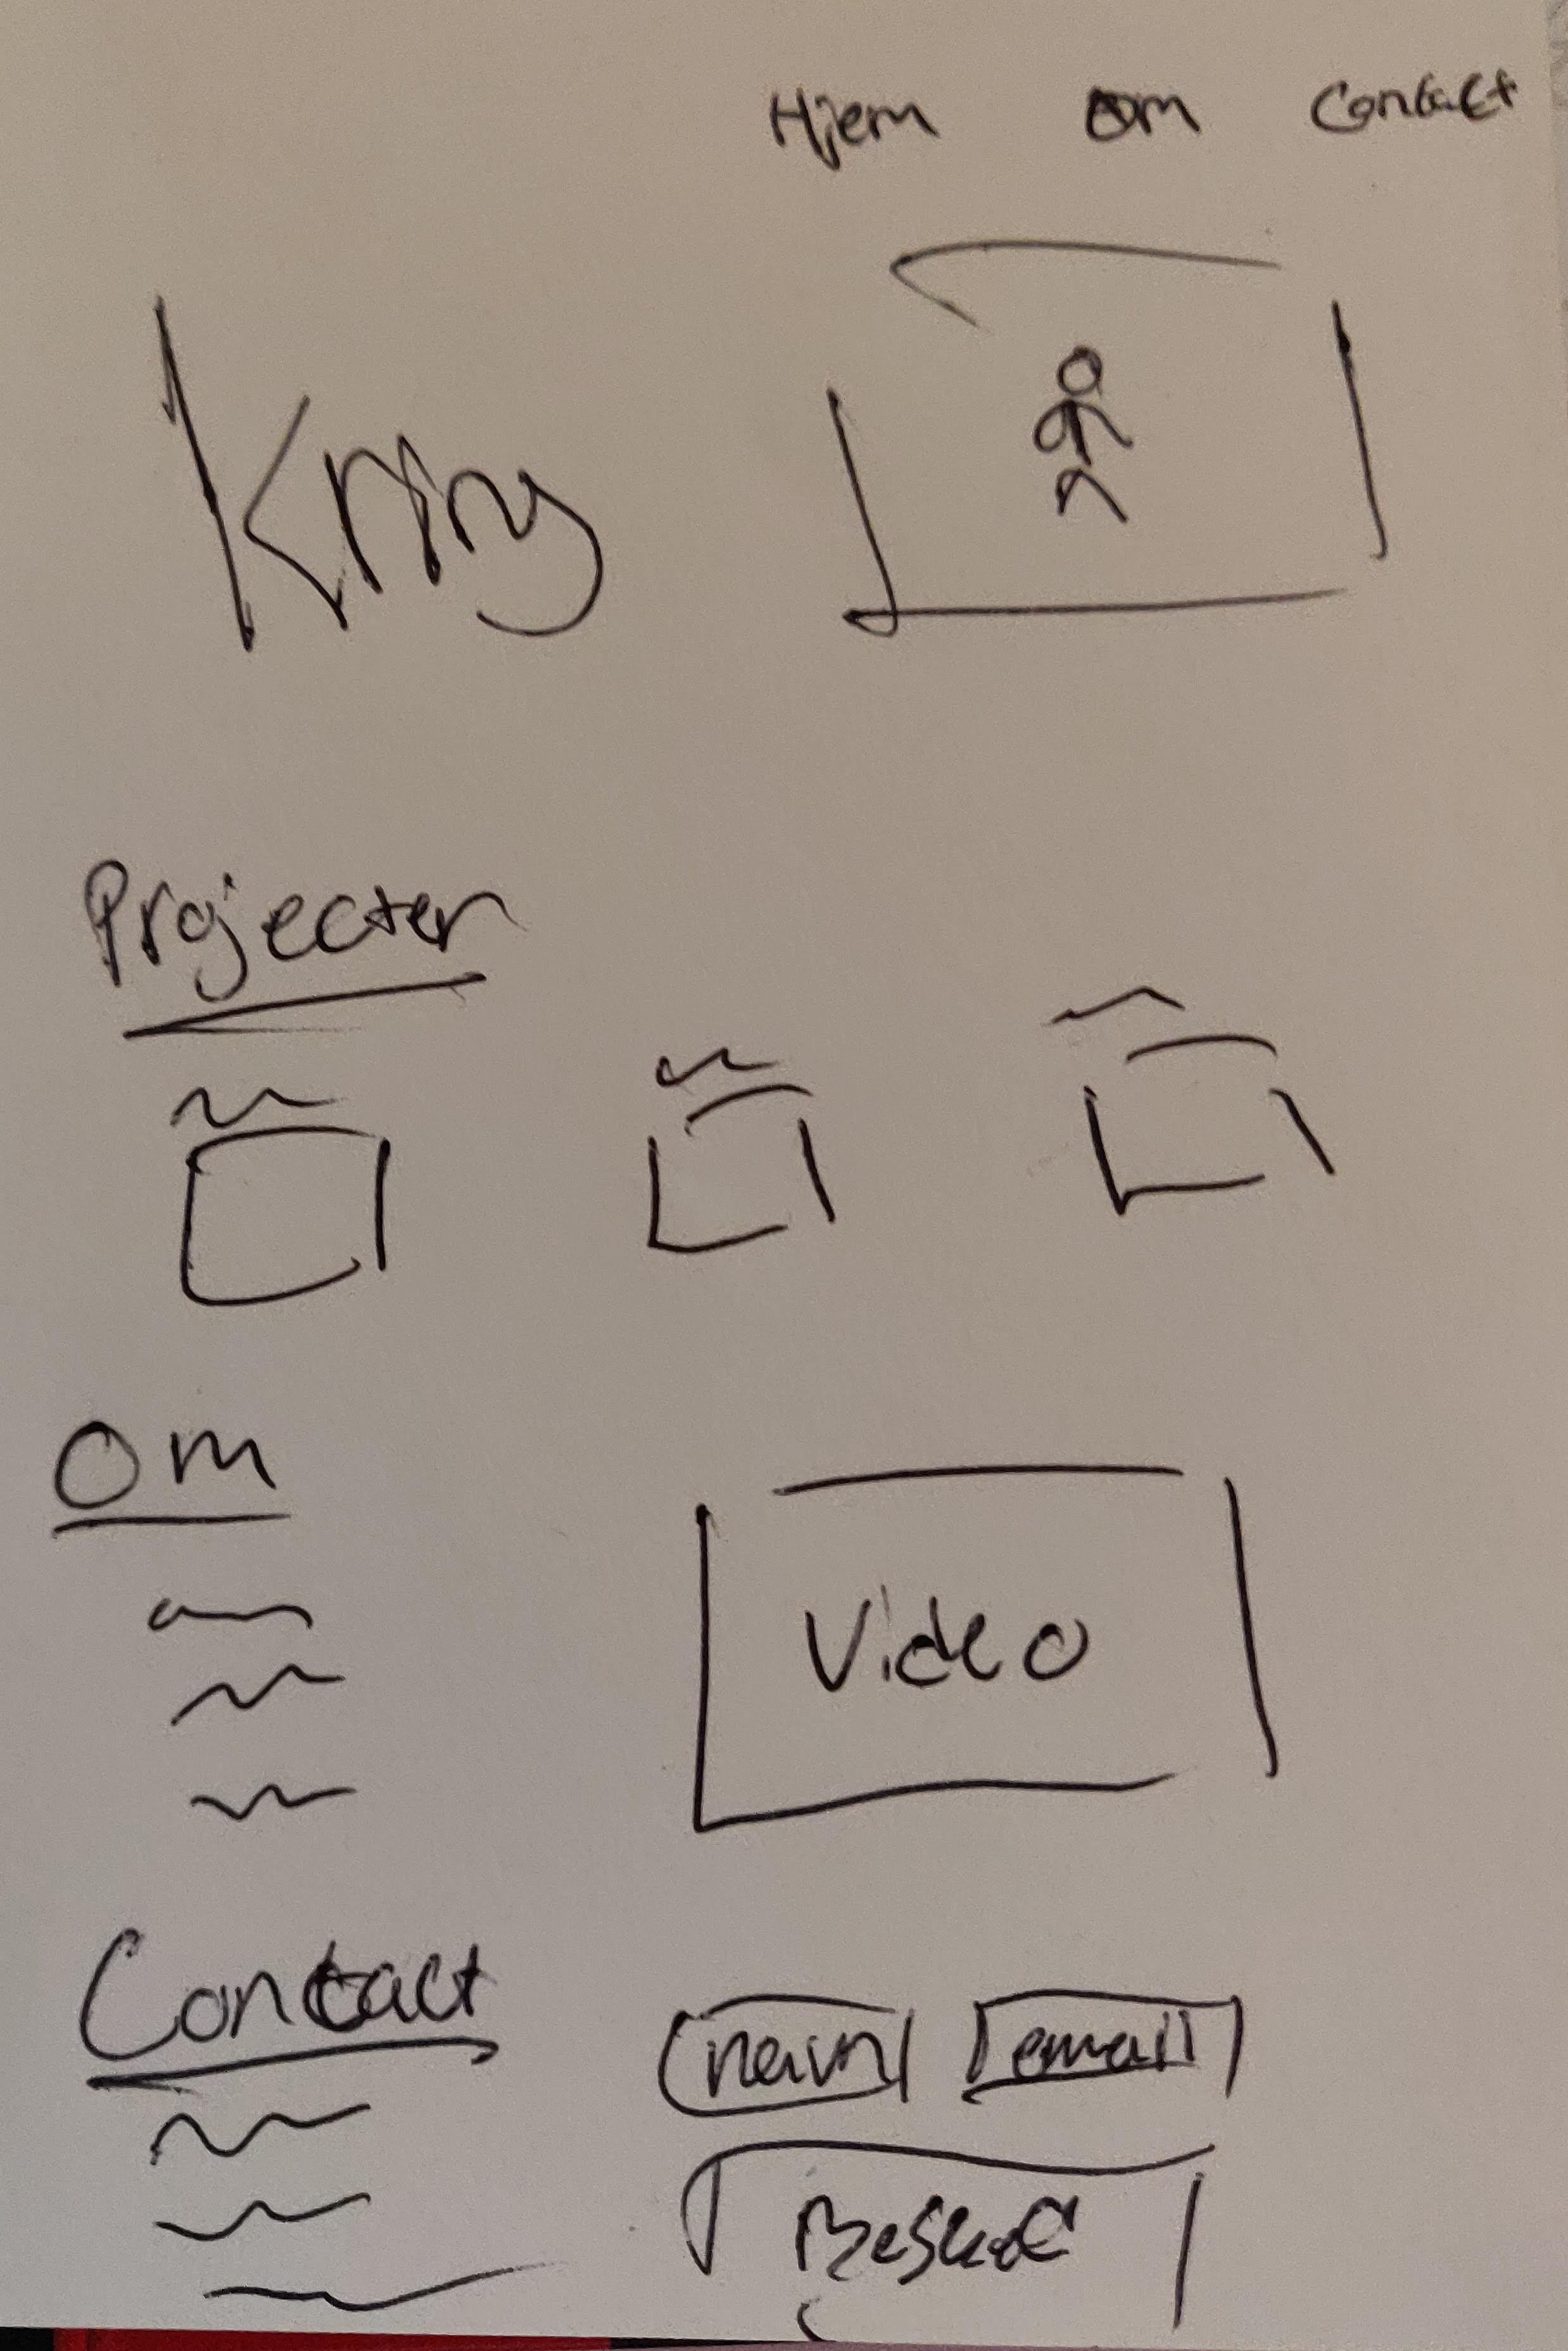 Hjem Om Contact
Projecter
Om
Video
Contact
navn email